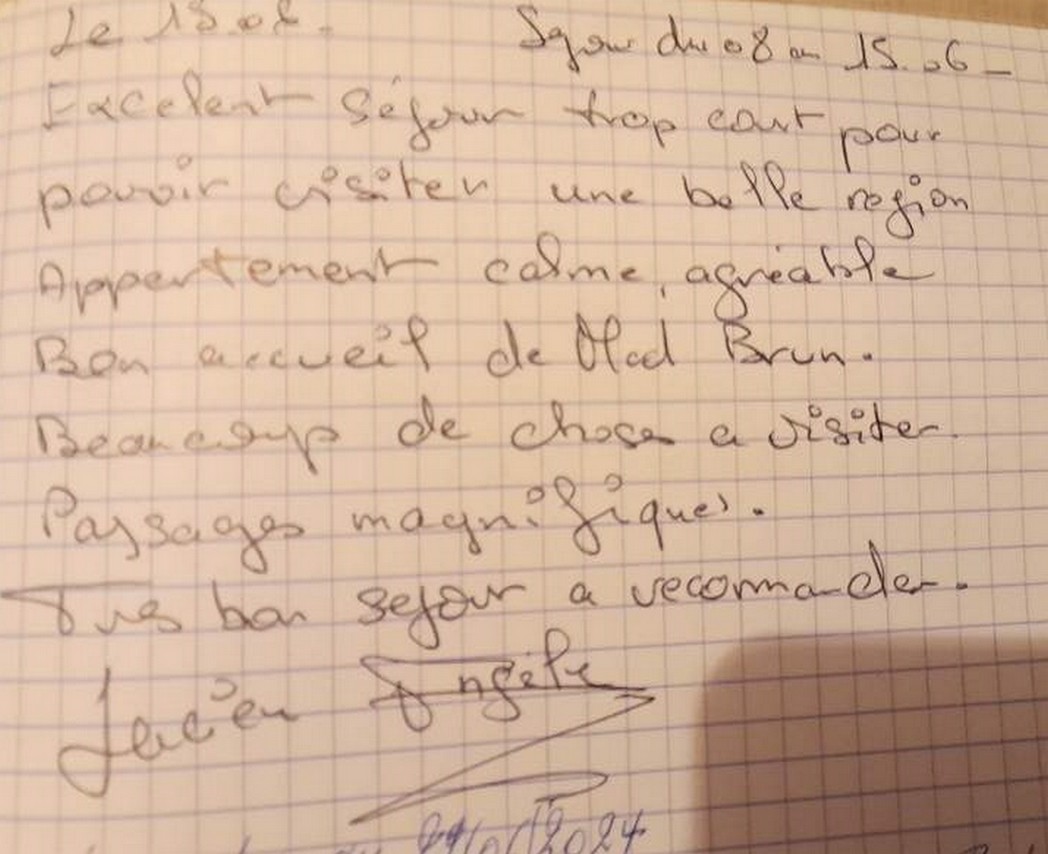 Le 15.06. Sejour du 08 au 15.06 -
Excelent séjour trop court pour
pouvoir visiter une belle region
Appertement calme, agréable
Bon accueil de Mad Brun.
Beaucoup de chose a visiter.
Paysages magnifiques.
Tres bon sejour a recommander.
Angèle
2024